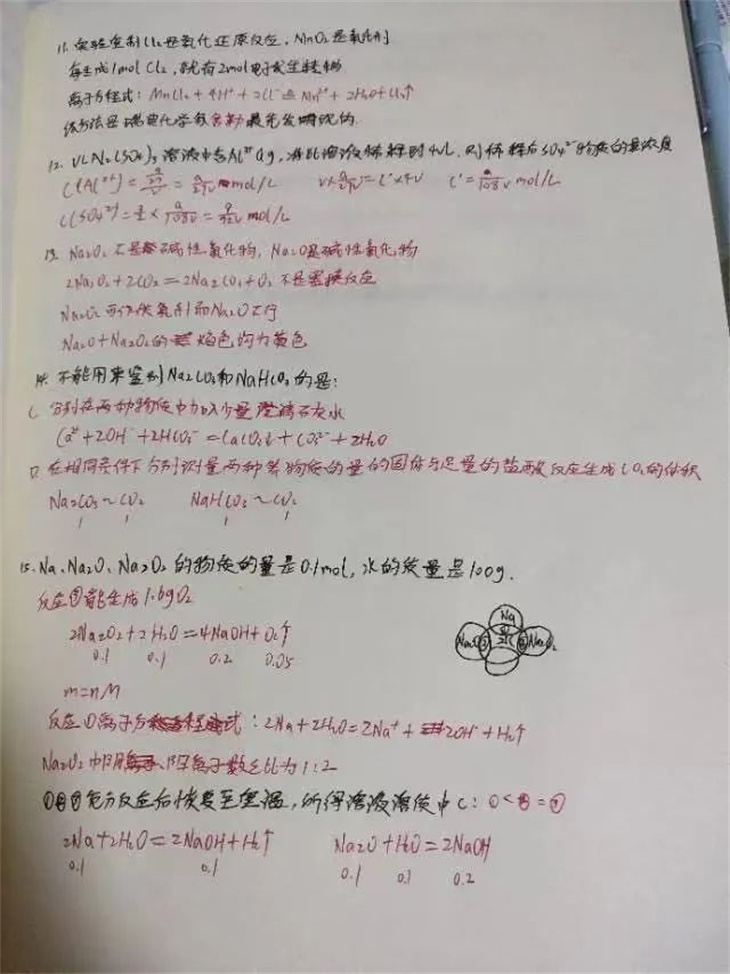 11. 实验室制Cl₂是氧化还原反应，MnO₂是氧化剂
每生成1molCl₂，就有2mol电子发生转移
离子方程式：MnCl₂ + 4H⁺ + 2Cl⁻ Mn²⁺ + 2H₂O + Cl₂↑
该方法是瑞典化学家舍勒最先发现的
12. VL Al₂(SO₄)₃溶液中含Al³⁺ a g，将此溶液稀释到4VL，则稀释后SO₄²⁻物质的量浓度
C(Al³⁺) = = a/27V mol/L V×a/27V = C'×4V C' = a/108V mol/L
C(SO₄²⁻) = 3/2 × a/108V = a/72V mol/L
13. Na₂O₂不是碱性氧化物，Na₂O是碱性氧化物
2Na₂O₂ + 2CO₂ = 2Na₂CO₃ + O₂ 不是置换反应
Na₂O₂可作供氧剂而Na₂O不行
Na₂O + Na₂O₂的焰色均为黄色
14. 不能用来鉴别Na₂CO₃和NaHCO₃的是：
C. 分别在两种物质中加入少量澄清石灰水
Ca²⁺ + 2OH⁻ + 2HCO₃⁻ = CaCO₃↓ + CO₃²⁻ + 2H₂O
D. 在相同条件下分别测量两种等物质的量的固体与足量的盐酸反应生成CO₂的体积
Na₂CO₃ ~ CO₂ NaHCO₃ ~ CO₂
1 1 1 1
15. Na、Na₂O、Na₂O₂的物质的量是0.1mol，水的质量是100g.
反应③能生成1.6gO₂
2Na₂O₂ + 2H₂O = 4NaOH + O₂↑
0.1 0.1 0.2 0.05
Na
Na₂O ② ③ Na₂O₂
m=nM
反应①离子方程式：2Na + 2H₂O = 2Na⁺ + 2OH⁻ + H₂↑
Na₂O₂中阴离子、阳离子数之比为1:2
①②③充分反应后恢复至室温，所得溶液溶质中C：①<②=③
2Na + 2H₂O = 2NaOH + H₂↑ Na₂O + H₂O = 2NaOH
0.1 0.1 0.1 0.1 0.2